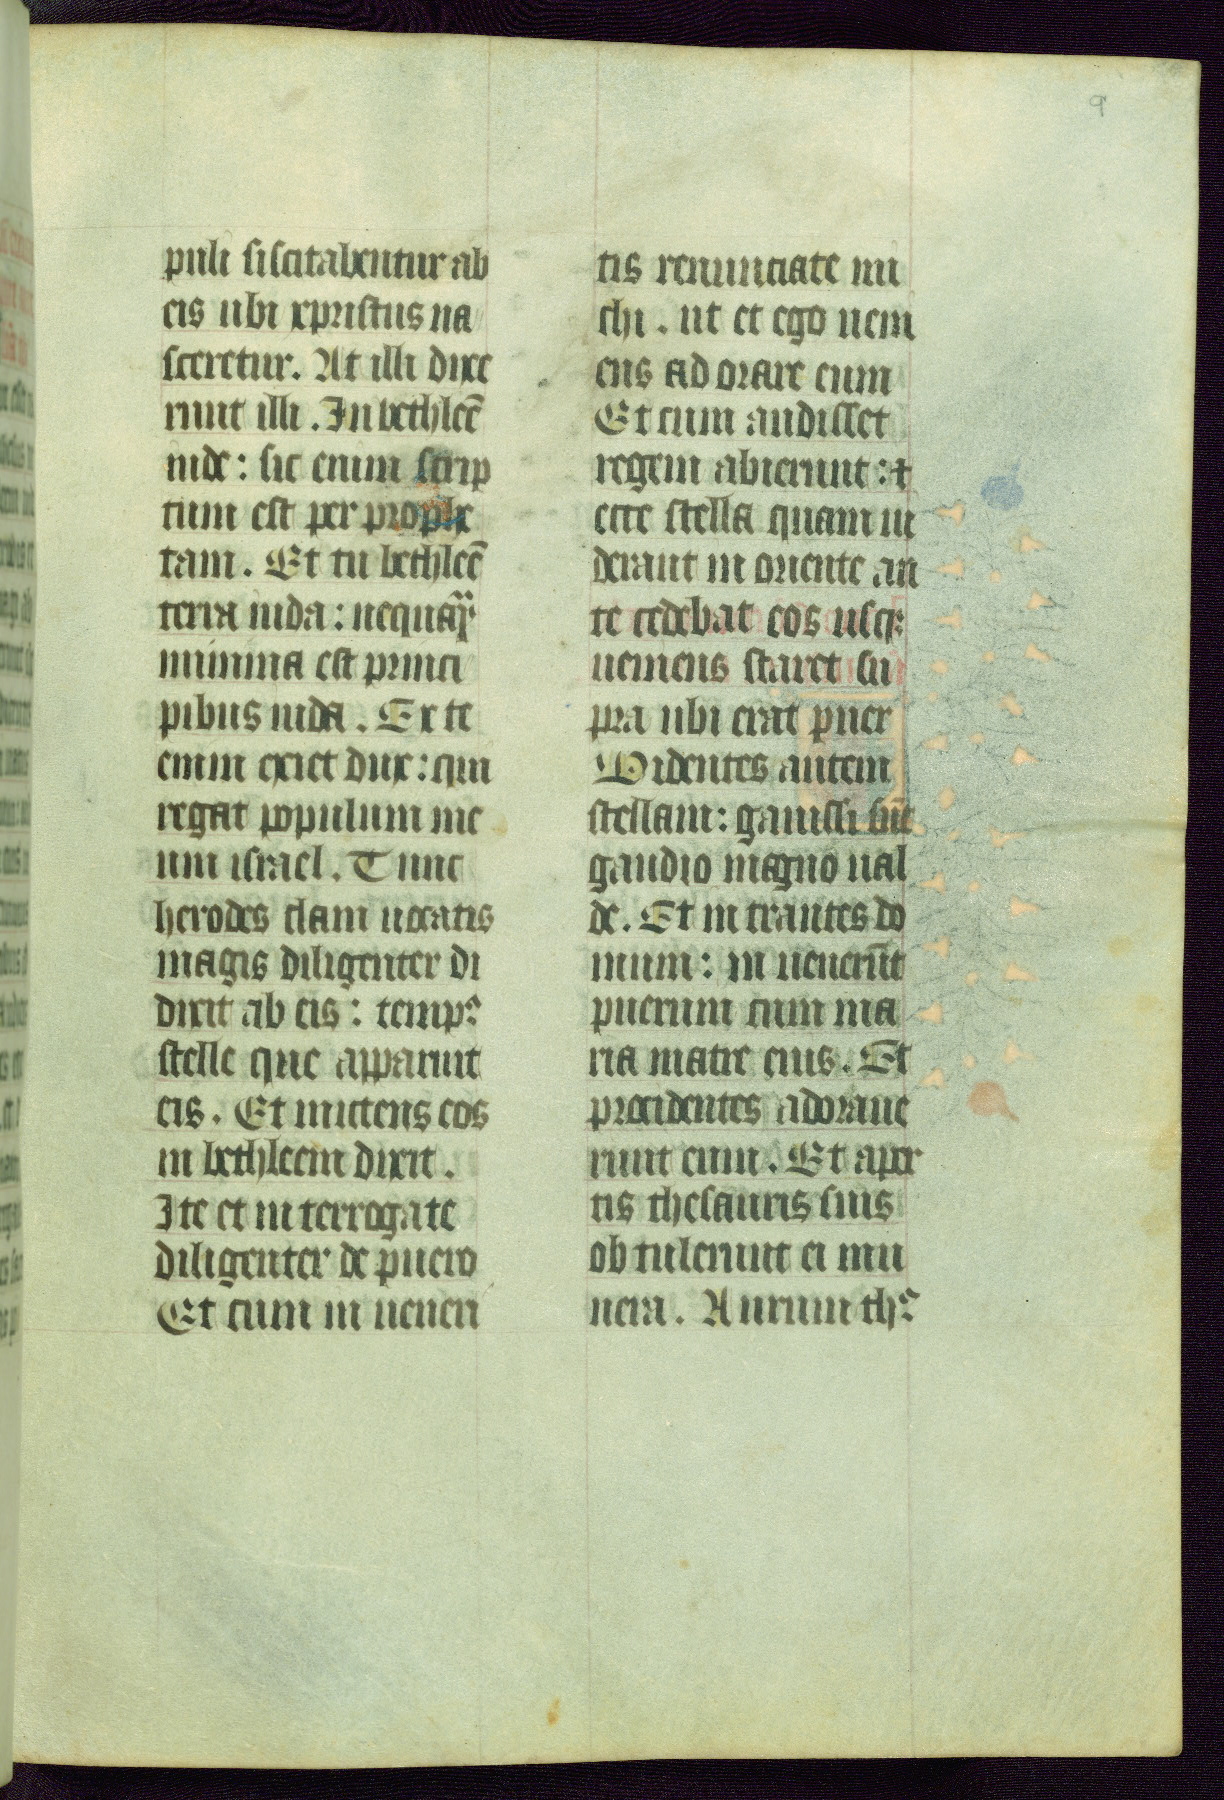 9
puli siscitabentur ab
eis ubi xpristus na
sceretur. At illi dixe
runt illi. In bethleē
iude: sic enim scrip
tum est per prophe
tam. Et tu bethleē
terra iuda: nequaq̄
minima est princi
pibus iuda. Ex te
enim exiet dux: qui
regat populum me
um israel. Tunc
herodes clam uocatis
magis diligenter di
dixit ab eis: tempꝰ
stelle que apparuit
eis. Et mittens eos
in bethleem dixit.
Ite et in terrogate
diligenter de puero
Et cum in ueneri
tis renunciate mi
chi. ut et ego ueni
ens ad orare eum
Et cum audisset
regem abierunt: ⁊
ecce stella quam ui
derant in oriente an
te cedebat eos usqꝫ
ueniens staret su
pra ubi erat puer
Videntes autem
stellam: gauisi sūt
gaudio magno ual
de. Et in trantes do
mum: in uenerūt
puerum cum ma
ria matre eius. Et
procidentes adoraue
runt eum. Et aper
tis thesauris suis
ob tulerunt ei mu
nera. Aurum thꝰ